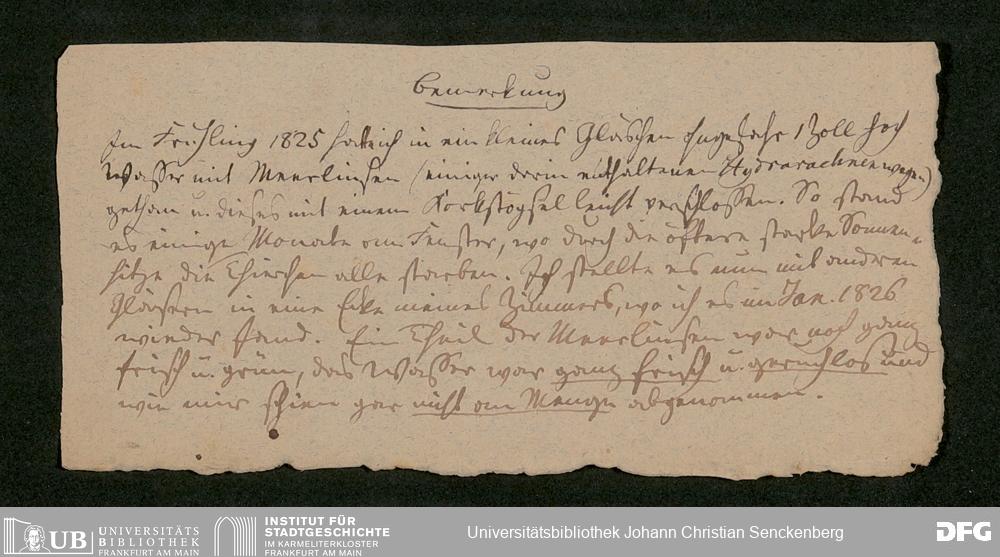 Bemerkung
Im Frühling 1825 hatte ich in ein kleines Gläschen ohngefähr 1 Zoll hoch
Wasser mit Meerlinsen (einiger darin enthaltenen Hydrarachnen wegen)
gethan u. dieses mit einem Korkstöpsel leicht verschlossen. So stand
es einige Monate am Fenster, wo durch die öftere starke Sonnen-
hitze die Thierchen alle starben. Ich stellte es nun mit anderen
Gläsern in eine Ecke meines Zimmers, wo ich es im Jan. 1826
wieder fand. Ein Theil der Meerlinsen war noch ganz
frisch u. grün, das Wasser war ganz frisch u. geruchlos und
wie mir schien gar nicht an Menge abgenommen.
UB UNIVERSITÄTS
BIBLIOTHEK
FRANKFURT AM MAIN
INSTITUT FÜR
STADTGESCHICHTE
IM KARMELITERKLOSTER
FRANKFURT AM MAIN
Universitätsbibliothek Johann Christian Senckenberg
DFG